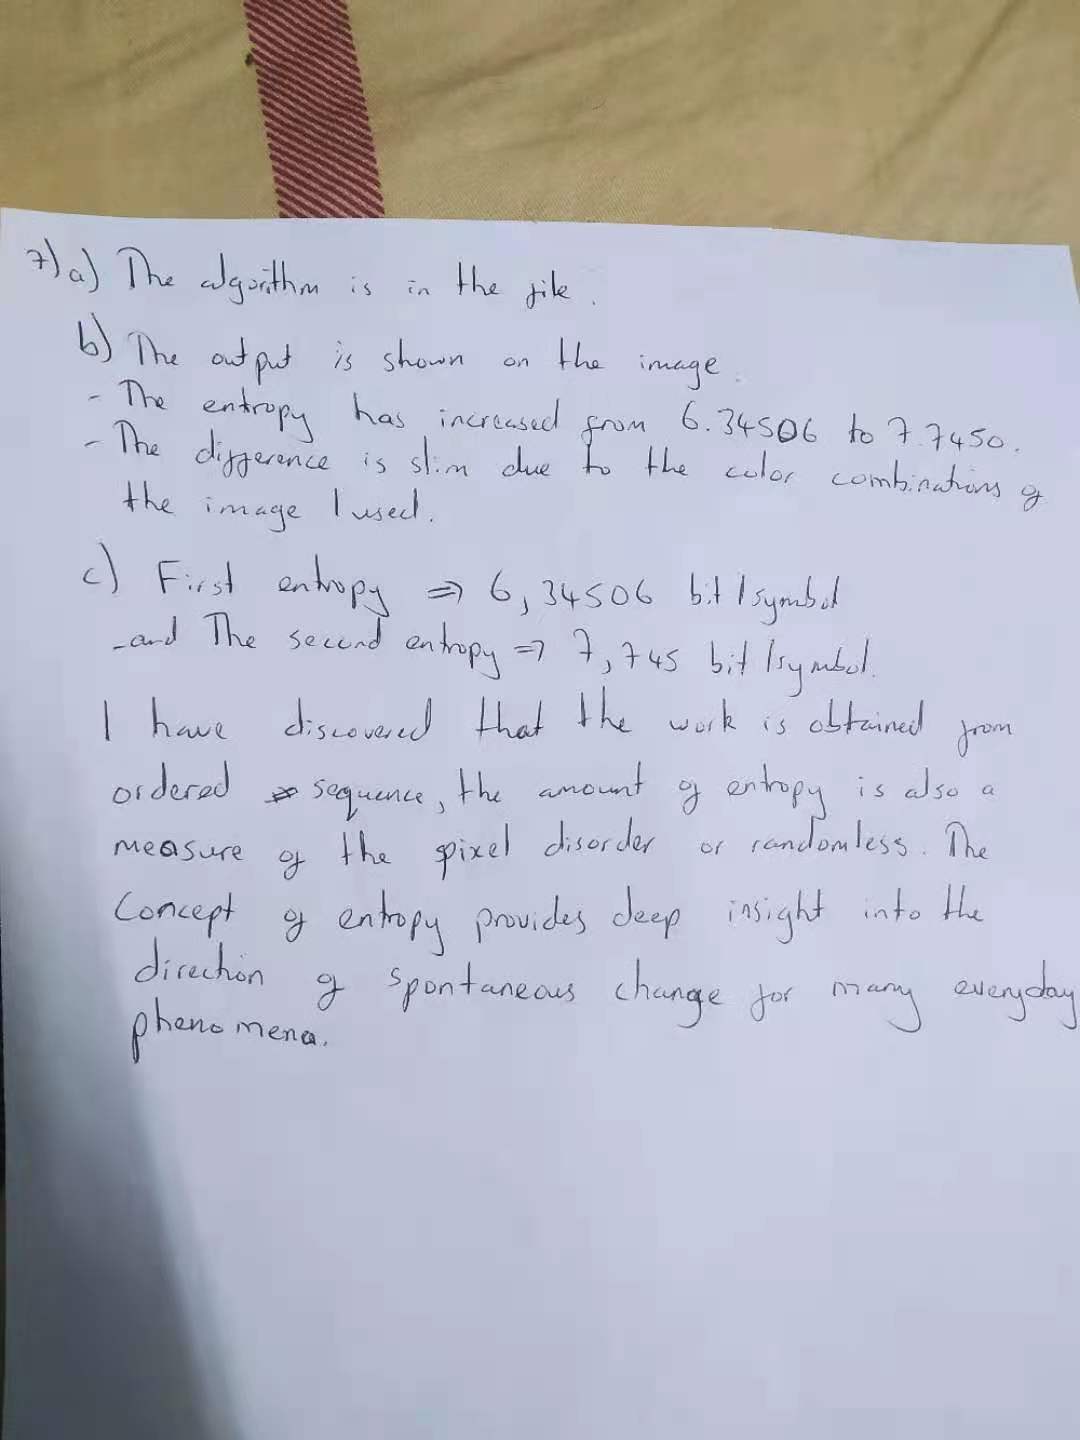 7) a) The algorithm is in the file.
b) The output is shown on the image.
- The entropy has increased from 6.34506 to 7.7450.
- The difference is slim due to the color combinations of
the image I used.
c) First entropy ⇒ 6,34506 bit/symbol
- and The second entropy ⇒ 7,745 bit/symbol.
I have discovered that the work is obtained from
ordered sequence, the amount of entropy is also a
measure of the pixel disorder or randomless. The
Concept of entropy provides deep insight into the
direction of spontaneous change for many everyday
phenomena.